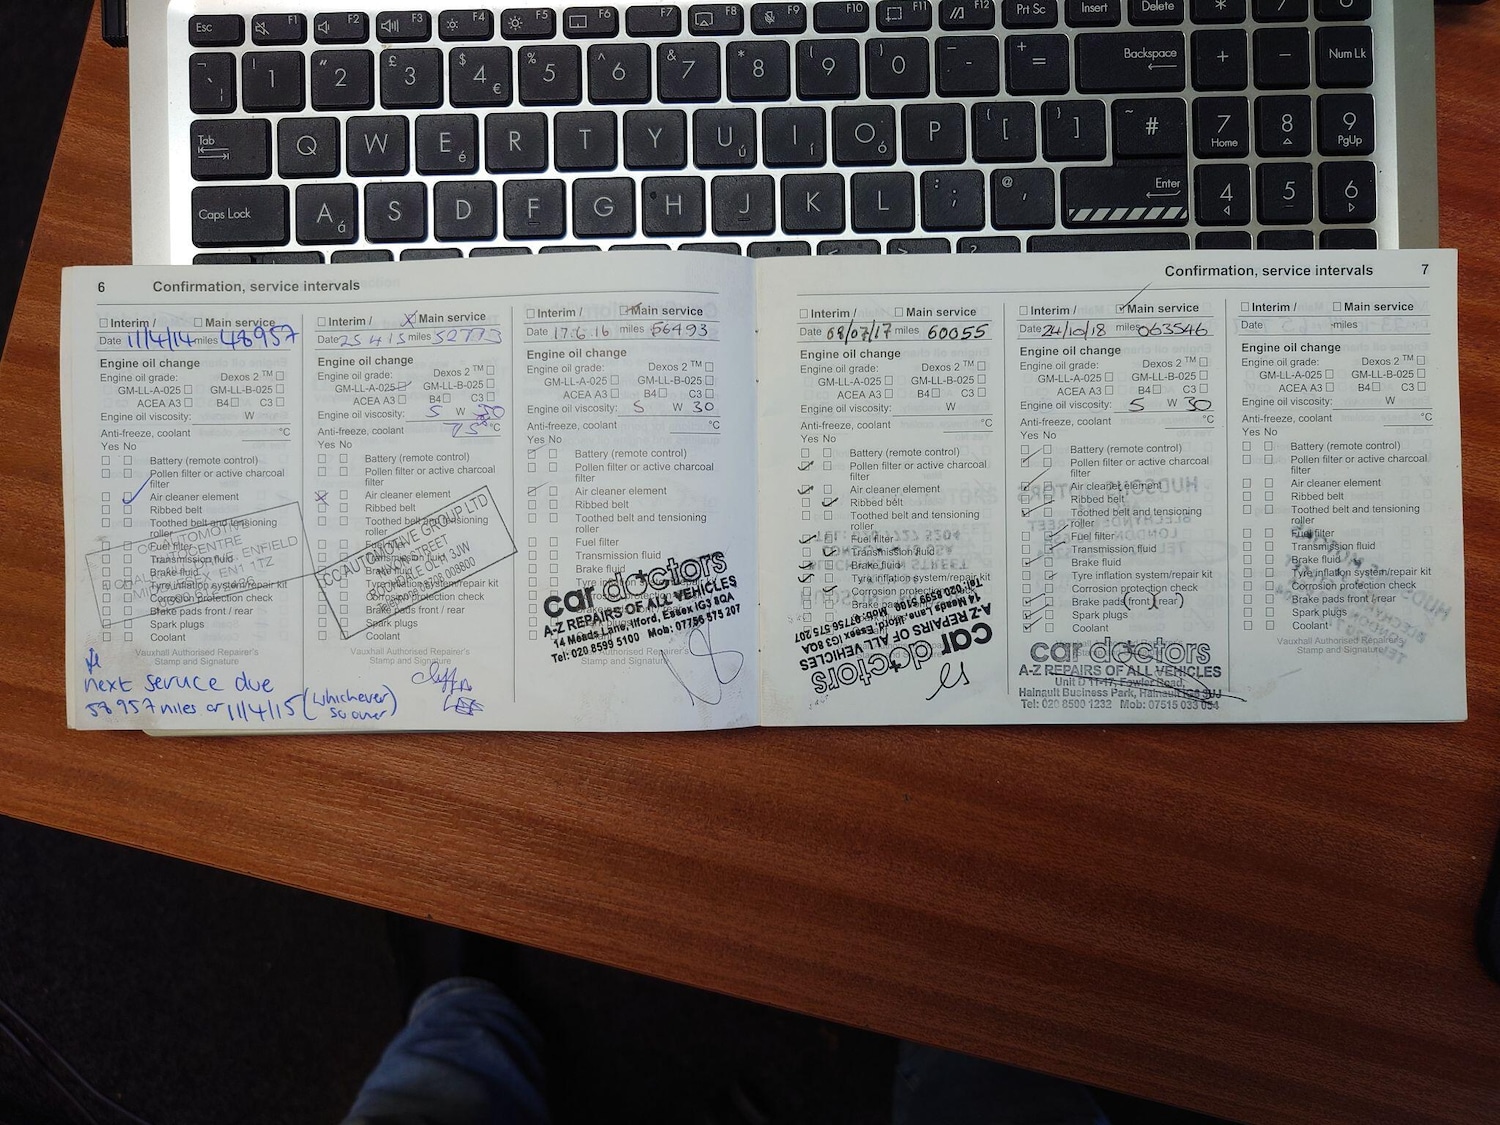 Esc F1 F2 F3 F4 F5 F6 F7 F8 F9 F10 F11 F12 Prt Sc Insert Delete * 7
! 1 " 2 £ 3 $ 4 € % 5 ^ 6 & 7 * 8 ( 9 ) 0 _ - + = Backspace + − Num Lk
Tab Q W E é R T Y U ú I í O ó P { [ } ] ~ # 7 Home 8 9 PgUp
Caps Lock A á S D F G H J K L : ; @ ' Enter 4 5 6
< > ?
6 Confirmation, service intervals
Interim / Main service
Date 11/4/14 miles 48957
Engine oil change
Engine oil grade: Dexos 2 ™
GM-LL-A-025 GM-LL-B-025
ACEA A3 B4 C3
Engine oil viscosity: W
Anti-freeze, coolant °C
Yes No
Battery (remote control)
Pollen filter or active charcoal
filter
Air cleaner element
Ribbed belt
Toothed belt and tensioning
roller
Fuel filter
Transmission fluid
Brake fluid
Tyre inflation system/repair kit
Corrosion protection check
Brake pads front / rear
Spark plugs
Coolant
Vauxhall Authorised Repairer's
Stamp and Signature
next service due
58957 miles or 11/4/15 (whichever
sooner)
Interim / Main service
Date 25 4 15 miles 52773
Engine oil change
Engine oil grade: Dexos 2 ™
GM-LL-A-025 GM-LL-B-025
ACEA A3 B4 C3
Engine oil viscosity: 5 W 30
Anti-freeze, coolant °C
Yes No
Battery (remote control)
Pollen filter or active charcoal
filter
Air cleaner element
Ribbed belt
Toothed belt and tensioning
roller
Fuel filter
Transmission fluid
Brake fluid
Tyre inflation system/repair kit
Corrosion protection check
Brake pads front / rear
Spark plugs
Coolant
Vauxhall Authorised Repairer's
Stamp and Signature
CC AUTOMOTIVE GROUP LTD
NIXON STREET
ROCHDALE OL11 3JW
Interim / Main service
Date 17.6.16 miles 56493
Engine oil change
Engine oil grade: Dexos 2 ™
GM-LL-A-025 GM-LL-B-025
ACEA A3 B4 C3
Engine oil viscosity: 5 W 30
Anti-freeze, coolant °C
Yes No
Battery (remote control)
Pollen filter or active charcoal
filter
Air cleaner element
Ribbed belt
Toothed belt and tensioning
roller
Fuel filter
Transmission fluid
Brake fluid
car doctors
A-Z REPAIRS OF ALL VEHICLES
14 Meads Lane, Ilford, Essex IG3 8QA
Tel: 020 8599 5100 Mob: 07756 575 207
Authorised Repairer's
Stamp and Signature
Confirmation, service intervals 7
Interim / Main service
Date 08/07/17 miles 60055
Engine oil change
Engine oil grade: Dexos 2 ™
GM-LL-A-025 GM-LL-B-025
ACEA A3 B4 C3
Engine oil viscosity: W
Anti-freeze, coolant °C
Yes No
Battery (remote control)
Pollen filter or active charcoal
filter
Air cleaner element
Ribbed belt
Toothed belt and tensioning
roller
Fuel filter
Transmission fluid
Brake fluid
Tyre inflation system/repair kit
Corrosion protection
Brake pads
car doctors
A-Z REPAIRS OF ALL VEHICLES
14 Meads Lane, Ilford, Essex IG3 8QA
Tel: 020 8599 5100 Mob: 07756 575 207
Interim / Main service
Date 24/10/18 miles 063546
Engine oil change
Engine oil grade: Dexos 2 ™
GM-LL-A-025 GM-LL-B-025
ACEA A3 B4 C3
Engine oil viscosity: 5 W 30
Anti-freeze, coolant °C
Yes No
Battery (remote control)
Pollen filter or active charcoal
filter
Air cleaner element
Ribbed belt
Toothed belt and tensioning
roller
Fuel filter
Transmission fluid
Brake fluid
Tyre inflation system/repair kit
Corrosion protection check
Brake pads (front) (rear)
Spark plugs
Coolant
car doctors
A-Z REPAIRS OF ALL VEHICLES
Unit D 11-17, Fowler Road,
Hainault Business Park, Hainault IG6 3UJ
Tel: 020 8500 1232 Mob: 07515 033 034
Interim / Main service
Date miles
Engine oil change
Engine oil grade: Dexos 2 ™
GM-LL-A-025 GM-LL-B-025
ACEA A3 B4 C3
Engine oil viscosity: W
Anti-freeze, coolant °C
Yes No
Battery (remote control)
Pollen filter or active charcoal
filter
Air cleaner element
Ribbed belt
Toothed belt and tensioning
roller
Fuel filter
Transmission fluid
Brake fluid
Tyre inflation system/repair kit
Corrosion protection check
Brake pads front / rear
Spark plugs
Coolant
Vauxhall Authorised Repairer's
Stamp and Signature